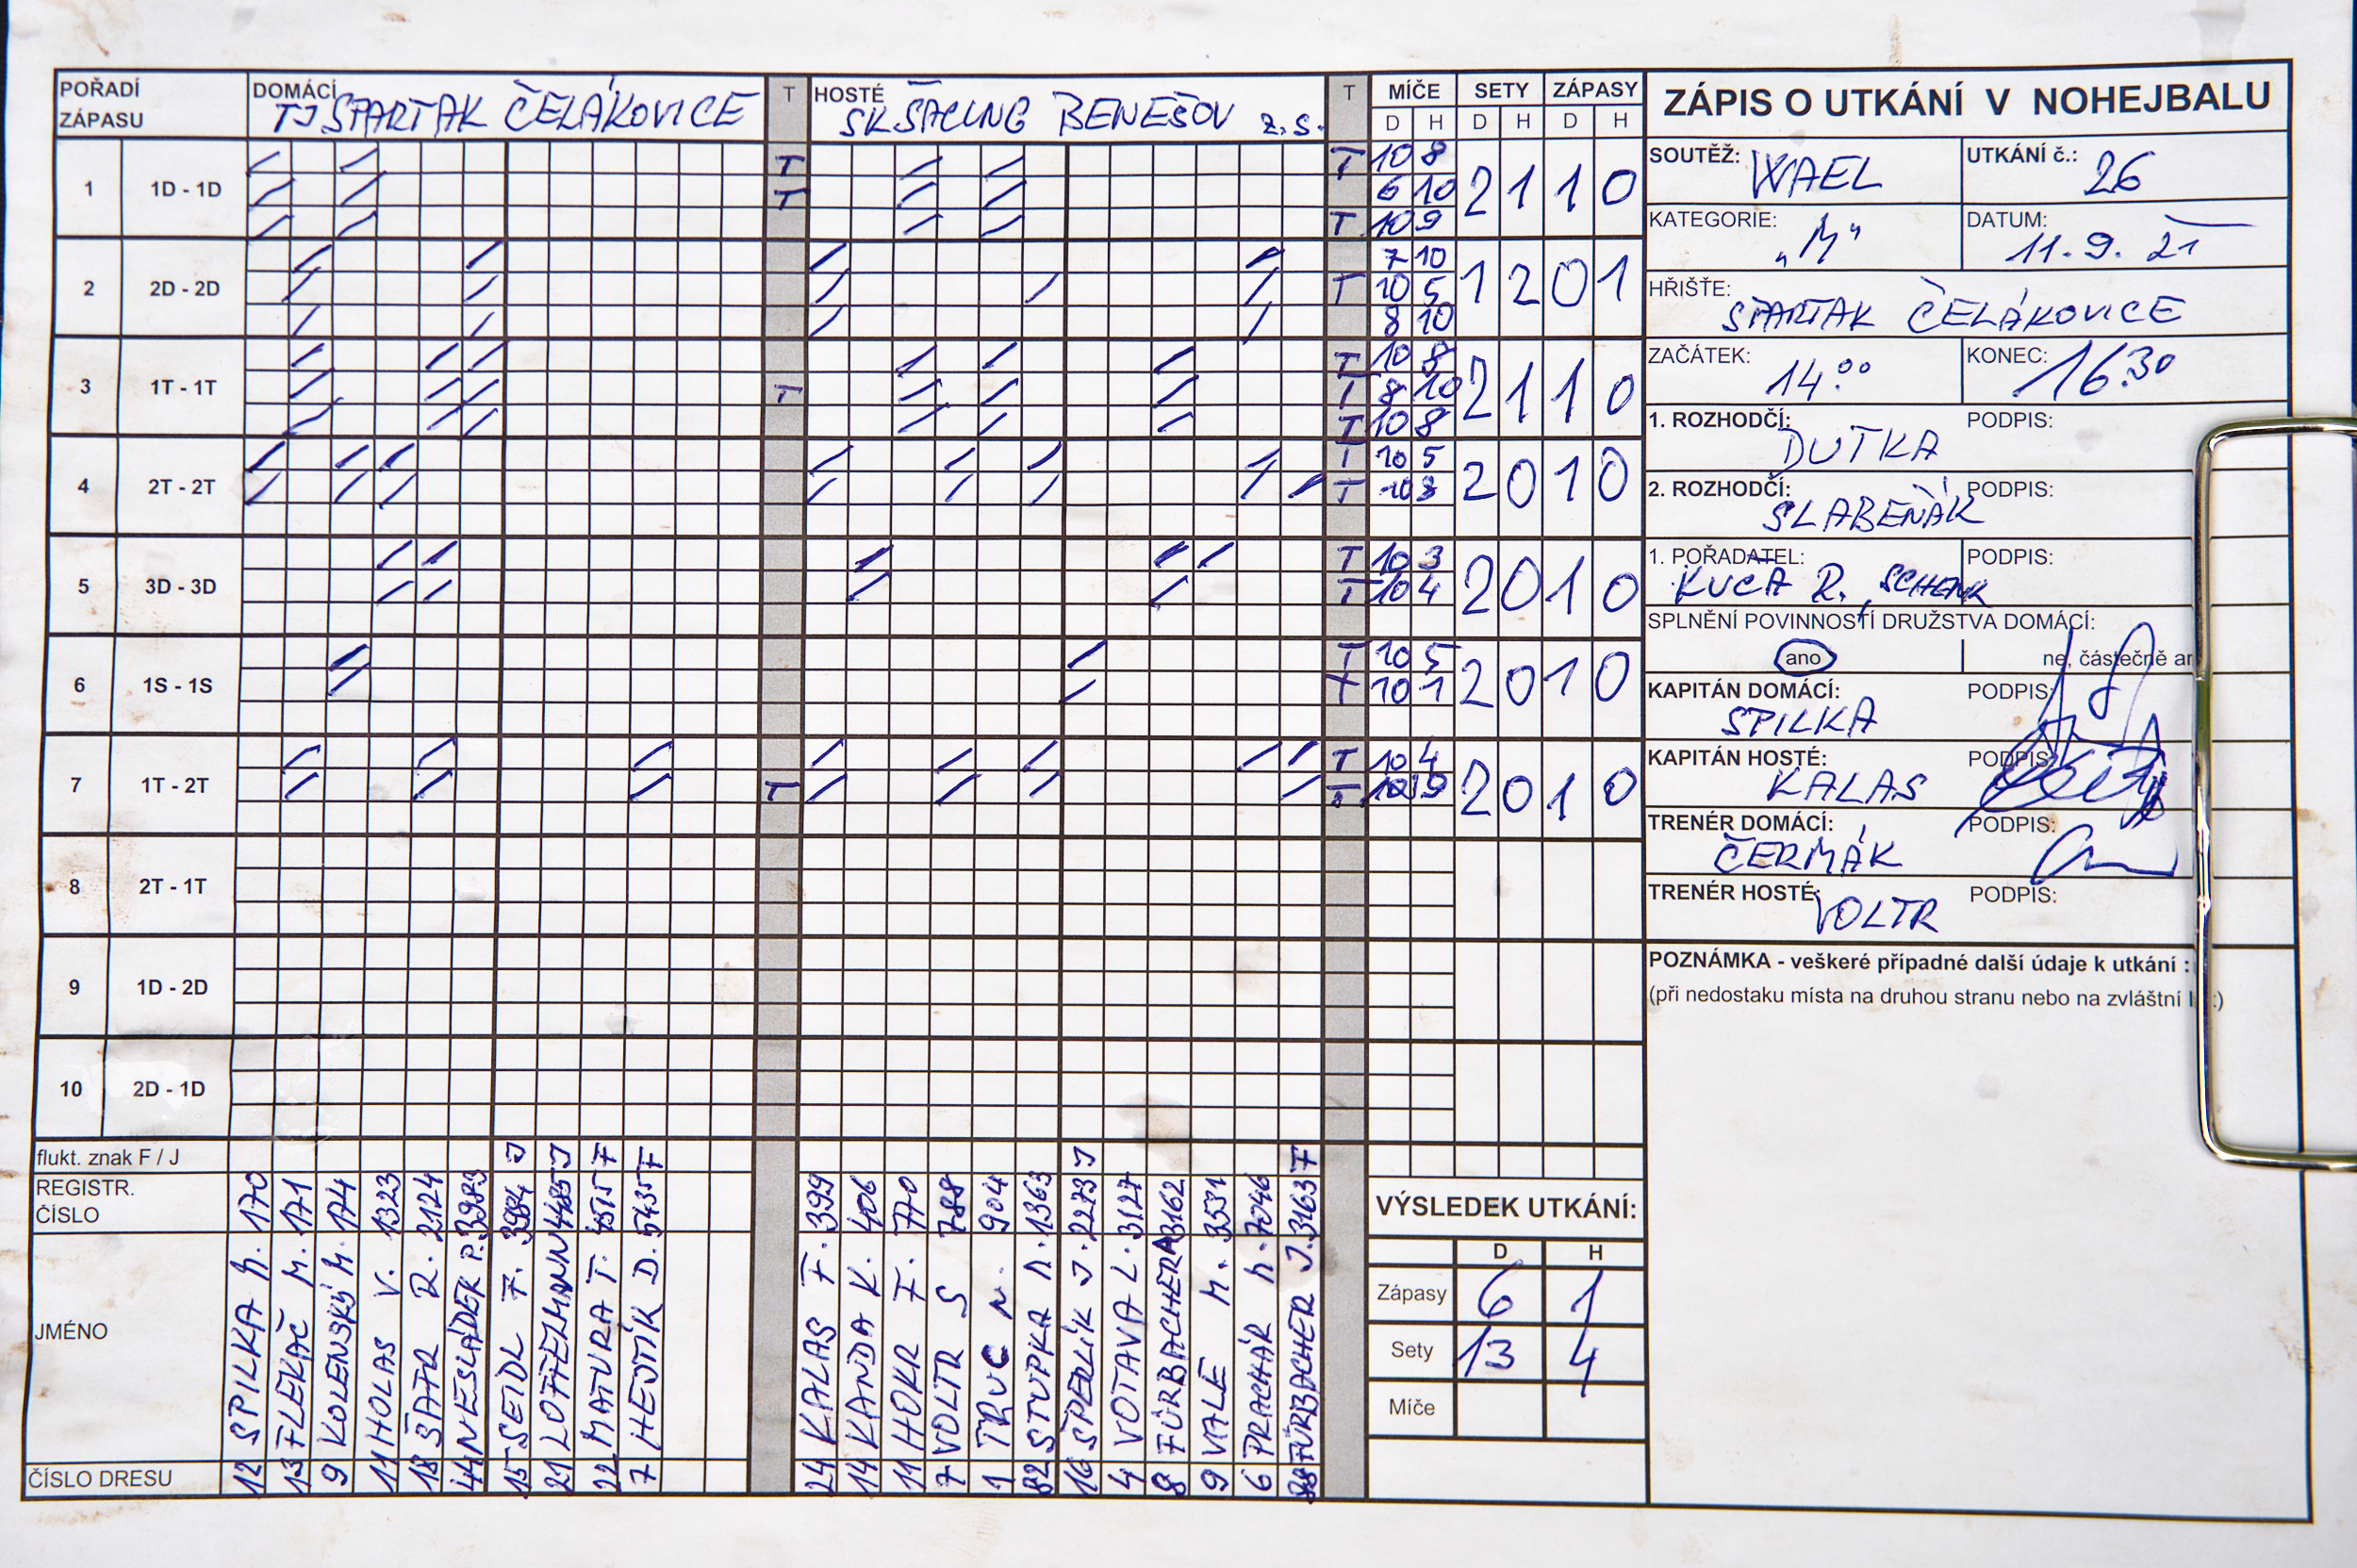 POŘADÍ ZÁPASU
DOMÁCÍ TJ SPARTAK ČELÁKOVICE
T
HOSTÉ SK ŠACUNG BENEŠOV z.s.
T
MÍČE SETY ZÁPASY
D H D H D H
1 1D - 1D T T T T 10 8 6 10 10 9 2 1 1 0
2 2D - 2D T 7 10 10 5 8 10 1 2 0 1
3 1T - 1T T T T T 10 8 8 10 10 8 2 1 1 0
4 2T - 2T T T 10 5 10 8 2 0 1 0
5 3D - 3D T T 10 3 10 4 2 0 1 0
6 1S - 1S T T 10 5 10 1 2 0 1 0
7 1T - 2T T T T 10 4 10 9 2 0 1 0
8 2T - 1T
9 1D - 2D
10 2D - 1D
flukt. znak F / J
REGISTR. ČÍSLO
JMÉNO
ČÍSLO DRESU
12 SPILKA M. 170
13 FLEKAČ M. 171
9 KOLENSKÝ M. 174
11 HOLAS V. 1323
18 ŠAFR R. 2124
44 NESLÁDEK P. 3983
15 SEIDL F. 3984 J
21 LOFFELMANN 4485 J
22 MATURA T. 4515 F
7 HEJTÍK D. 5435 F
24 KALAS F. 399
14 KANDA K. 406
11 HOKR F. 770
7 VOLTR S 788
1 TRUC N. 904
82 STUPKA M. 1363
16 ŠPERLÍK J. 2273 J
4 VOTAVA L. 3127
8 FÜRBACHER A 3162
9 VALE M. 3531
6 PRACHÁŘ M. 7046
88 FÜRBACHER J. 3163 F
ZÁPIS O UTKÁNÍ V NOHEJBALU
SOUTĚŽ: WAEL
UTKÁNÍ č.: 26
KATEGORIE: „M“
DATUM: 11.9.21
HŘIŠTĚ: SPARTAK ČELÁKOVICE
ZAČÁTEK: 14:00
KONEC: 16:30
1. ROZHODČÍ: DUTKA PODPIS:
2. ROZHODČÍ: SLABEŇÁK PODPIS:
1. POŘADATEL: KUCA R., SCHENK PODPIS:
SPLNĚNÍ POVINNOSTÍ DRUŽSTVA DOMÁCÍ:
ano ne, částečně
KAPITÁN DOMÁCÍ: SPILKA PODPIS:
KAPITÁN HOSTÉ: KALAS PODPIS:
TRENÉR DOMÁCÍ: ČERMÁK PODPIS:
TRENÉR HOSTÉ: VOLTR PODPIS:
POZNÁMKA - veškeré případné další údaje k utkání :
(při nedostaku místa na druhou stranu nebo na zvláštní
VÝSLEDEK UTKÁNÍ:
D H
Zápasy 6 1
Sety 13 4
Míče